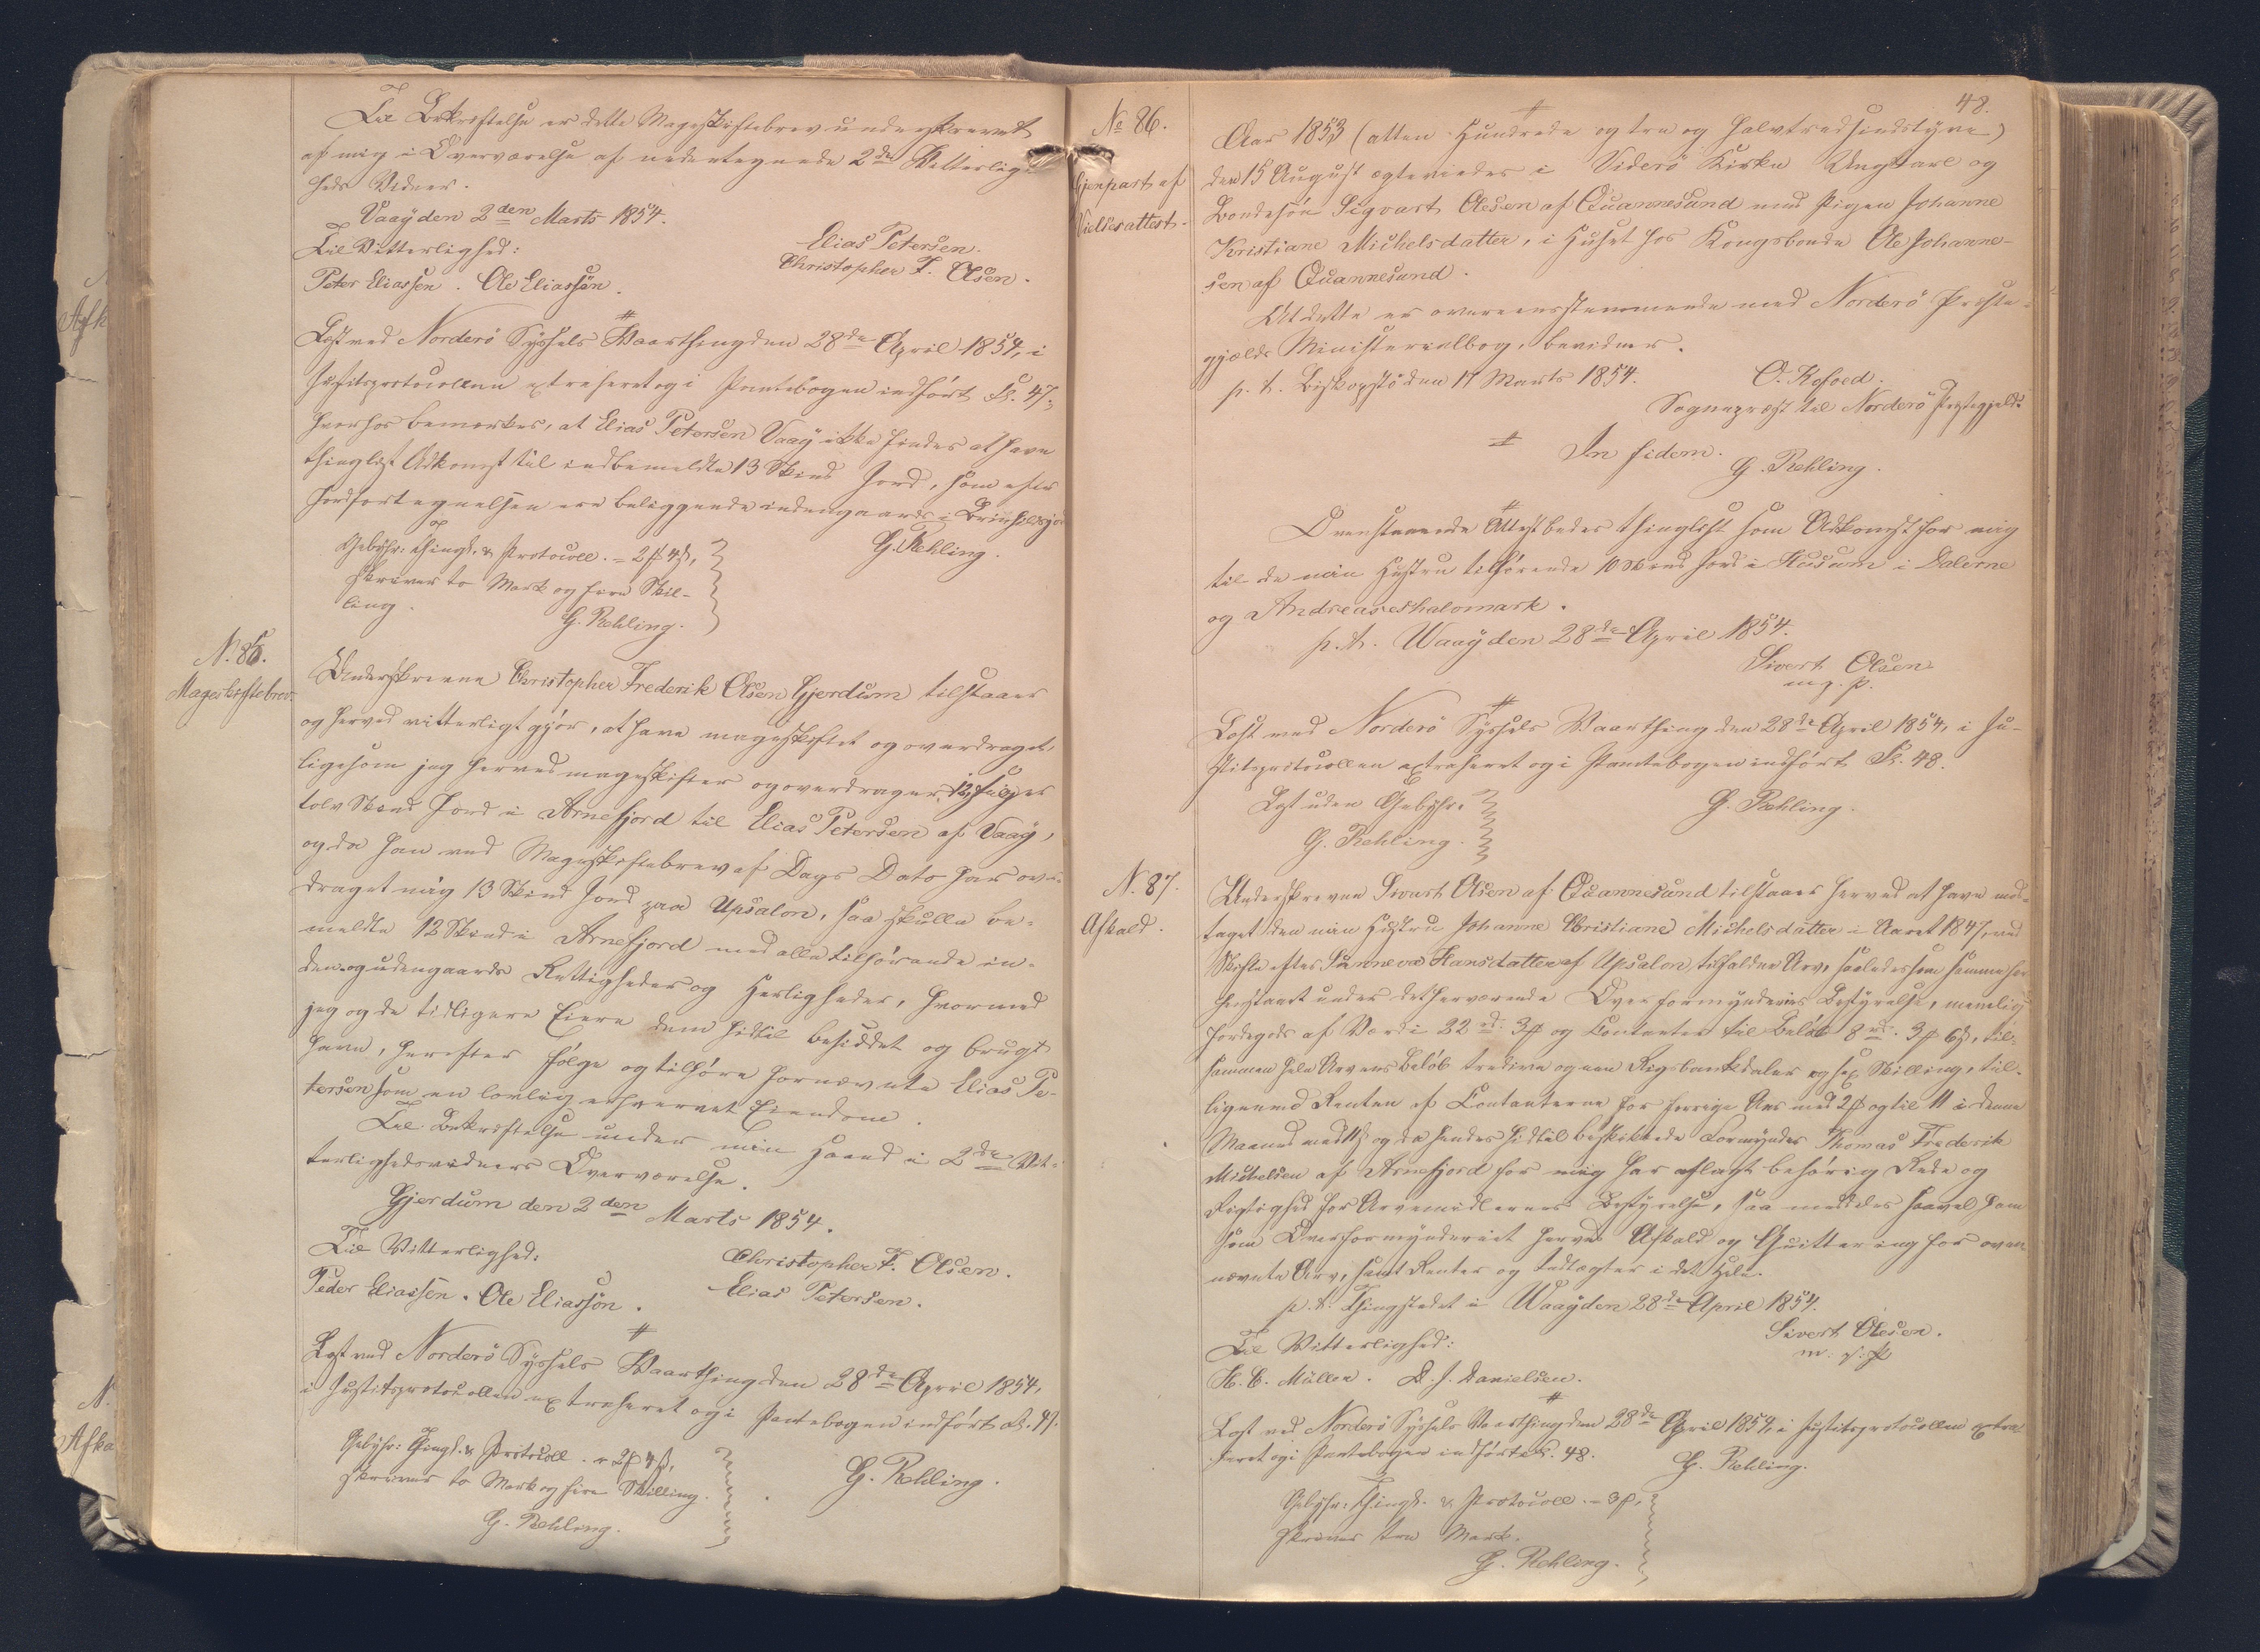 Til Bekræftelse er dette Mageskiftebrev underskrevet
af mig i Overværelse af undertegnede 2de Vitterlig-
heds Vidner.
Vaay den 2den Marts 1854.
Til Vitterlighed:
Elias Petersen.
Peter Eliassen. Ole Eliassön.
Christopher F. Olsen.
Læst ved Norderö Syssels Vaarthing den 28de April 1854, i
Justitsprotocollen extraheret og i Pantebogen indfört Fol. 47,
hvorhos bemærkes, at Elias Petersen Vaay ikke findes at have
thinglæst Adkomst til indbemeldte 13 Skind Jord, som efter
Jordfortegnelsen ere beliggende indengaards i
G. Rehling.
Gebyhr: Thingl. & Protocoll. = 2 ℳ 4 ß,
skriver to Mark og fire Skil-
ling.
G. Rehling.
N. 85.
Mageskiftebrev.
Underskrevne Christopher Frederik Olsen Gjerdum tilstaaer
og herved vitterligt gjör, at have mageskiftet og overdraget,
ligesom jeg herved mageskifter og overdrager 12, siger
tolv Skind Jord i Arnefjord til Elias Petersen af Vaay,
og da han ved Mageskiftebrev af Dags Dato har over-
draget mig 13 Skind Jord paa Upsalon, saa skulle be-
meldte 12 Skind i Arnefjord med alle tilhörende in-
den- og udengaards Rettigheder og Herligheder, hvormed
jeg og de tidligere Eiere dem hidtil besiddet og brugt
have, herefter fölge og tilhöre fornævnte Elias Pe-
tersen som en lovlig erhvervet Eiendom.
Til Bekræftelse under min Haand i 2de Vit-
terlighedsvidners Overværelse.
Gjerdum den 2den Marts 1854.
Til Vitterlighed:
Christopher F. Olsen.
Peder Eliassen. Ole Eliassön.
Elias Petersen.
Læst ved Norderö Syssels Vaarthing den 28de April 1854,
i Justitsprotocollen extraheret og i Pantebogen indfört Fol. 47.
Gebyhr: Thingl. & Protocoll. = 2 ℳ 4 ß,
skriver to Mark og fire Skilling.
G. Rehling.
G. Rehling.
48.
No 86.
Gjenpart af
Vielsesattest.
Aar 1853 (atten Hundrede og tre og halvtredsindstyve)
den 15 August ægteviedes i Viderö Kirke Ungkarl og
Bondesön Sigvart Olesen af Quannesund med Pigen Johanne
Kristiane Michelsdatter, i Huset hos Kongsbonde Ole Johanne-
sen af Quannesund.
At dette er overeensstemmende med Norderö Præste-
gjælds Ministerialbog, bevidner.
p. t. Biskopstö den 17 Marts 1854.
O. Kofoed.
Sognepræst til Norderö Præstegjeld.
In fidem.
G. Rehling.
Ovenstaaende Attest bedes thinglæst som Adkomst for mig
til de min Hustru tilhörende 10 Skind Jord i Husum i Dalerne
og Andreaseshalomark.
p. t. Waay den 28de April 1854.
Sivert Olsen
m. p.
Læst ved Norderö Syssels Vaarthing den 28de April 1854, i Ju-
stitsprotocollen extraheret og i Pantebogen indfört Fol. 48.
Læst uden Gebyhr.
G. Rehling.
G. Rehling.
N. 87.
Afkald.
Underskrevne Sivert Olsen af Quannesund tilstaaer herved at have mod-
taget den min Hustru Johanne Christiane Michelsdatter i Aaret 1847, ved
Skifte efter Sunneva Hansdatter af Upsalon, tilfaldne Arv, saaledes som samme har
henstaaet under det herværende Overformynderies Bestyrelse, nemlig
Jordegods af Værdi 22 rd. 3 ℳ og Contanter til Belöb 8 rd. 3 ℳ 6 ß, til-
sammen hele Arvens Belöb tredive og een Rigsbankdaler og sex Skilling, til-
ligemed Renten af Contanterne for forrige Aar med 2 ℳ og til 11 i denne
Maaned med og da hendes hidtil beskikkede Formynder Thomas Frederik
Michelsen af Arnefjord for mig har aflagt behörig Rede og
Rigtighed for Arvemidlernes Bestyrelse, saa meddeles saavel ham
som Overformynderiet herved Afkald og Quittering for oven-
nævnte Arv, samt Renter og Indtægter i det Hele.
p. t. Thingstedet i Waay den 28de April 1854.
Til Vitterlighed:
Sivert Olesen.
m. p.
H. C. Müller. D. J. Danielsen.
Læst ved Norderö Syssels Vaarthing den 28de April 1854, i Justitsprotocollen extra-
heret og i Pantebogen indfört Fol. 48.
G. Rehling.
Gebyhr: Thingl. & Protocoll. = 3 ℳ,
skriver tre Mark.
G. Rehling.